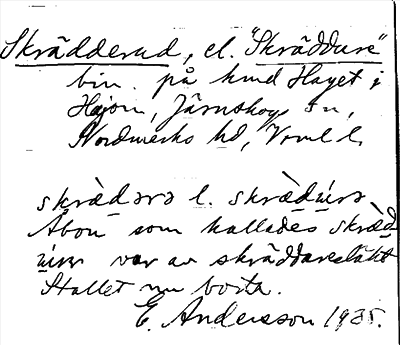 Skrädderud, el. "Skräddure"
bin. på hmd Haget i
Häjon, Järnskogs sn,
Nordmarks hd, Vrml l.
skrädərə l. skrädurə
Åbon som kallades skräd
urn var av skräddaresläkt
Stället nu borta.
E. Andersson 1935.